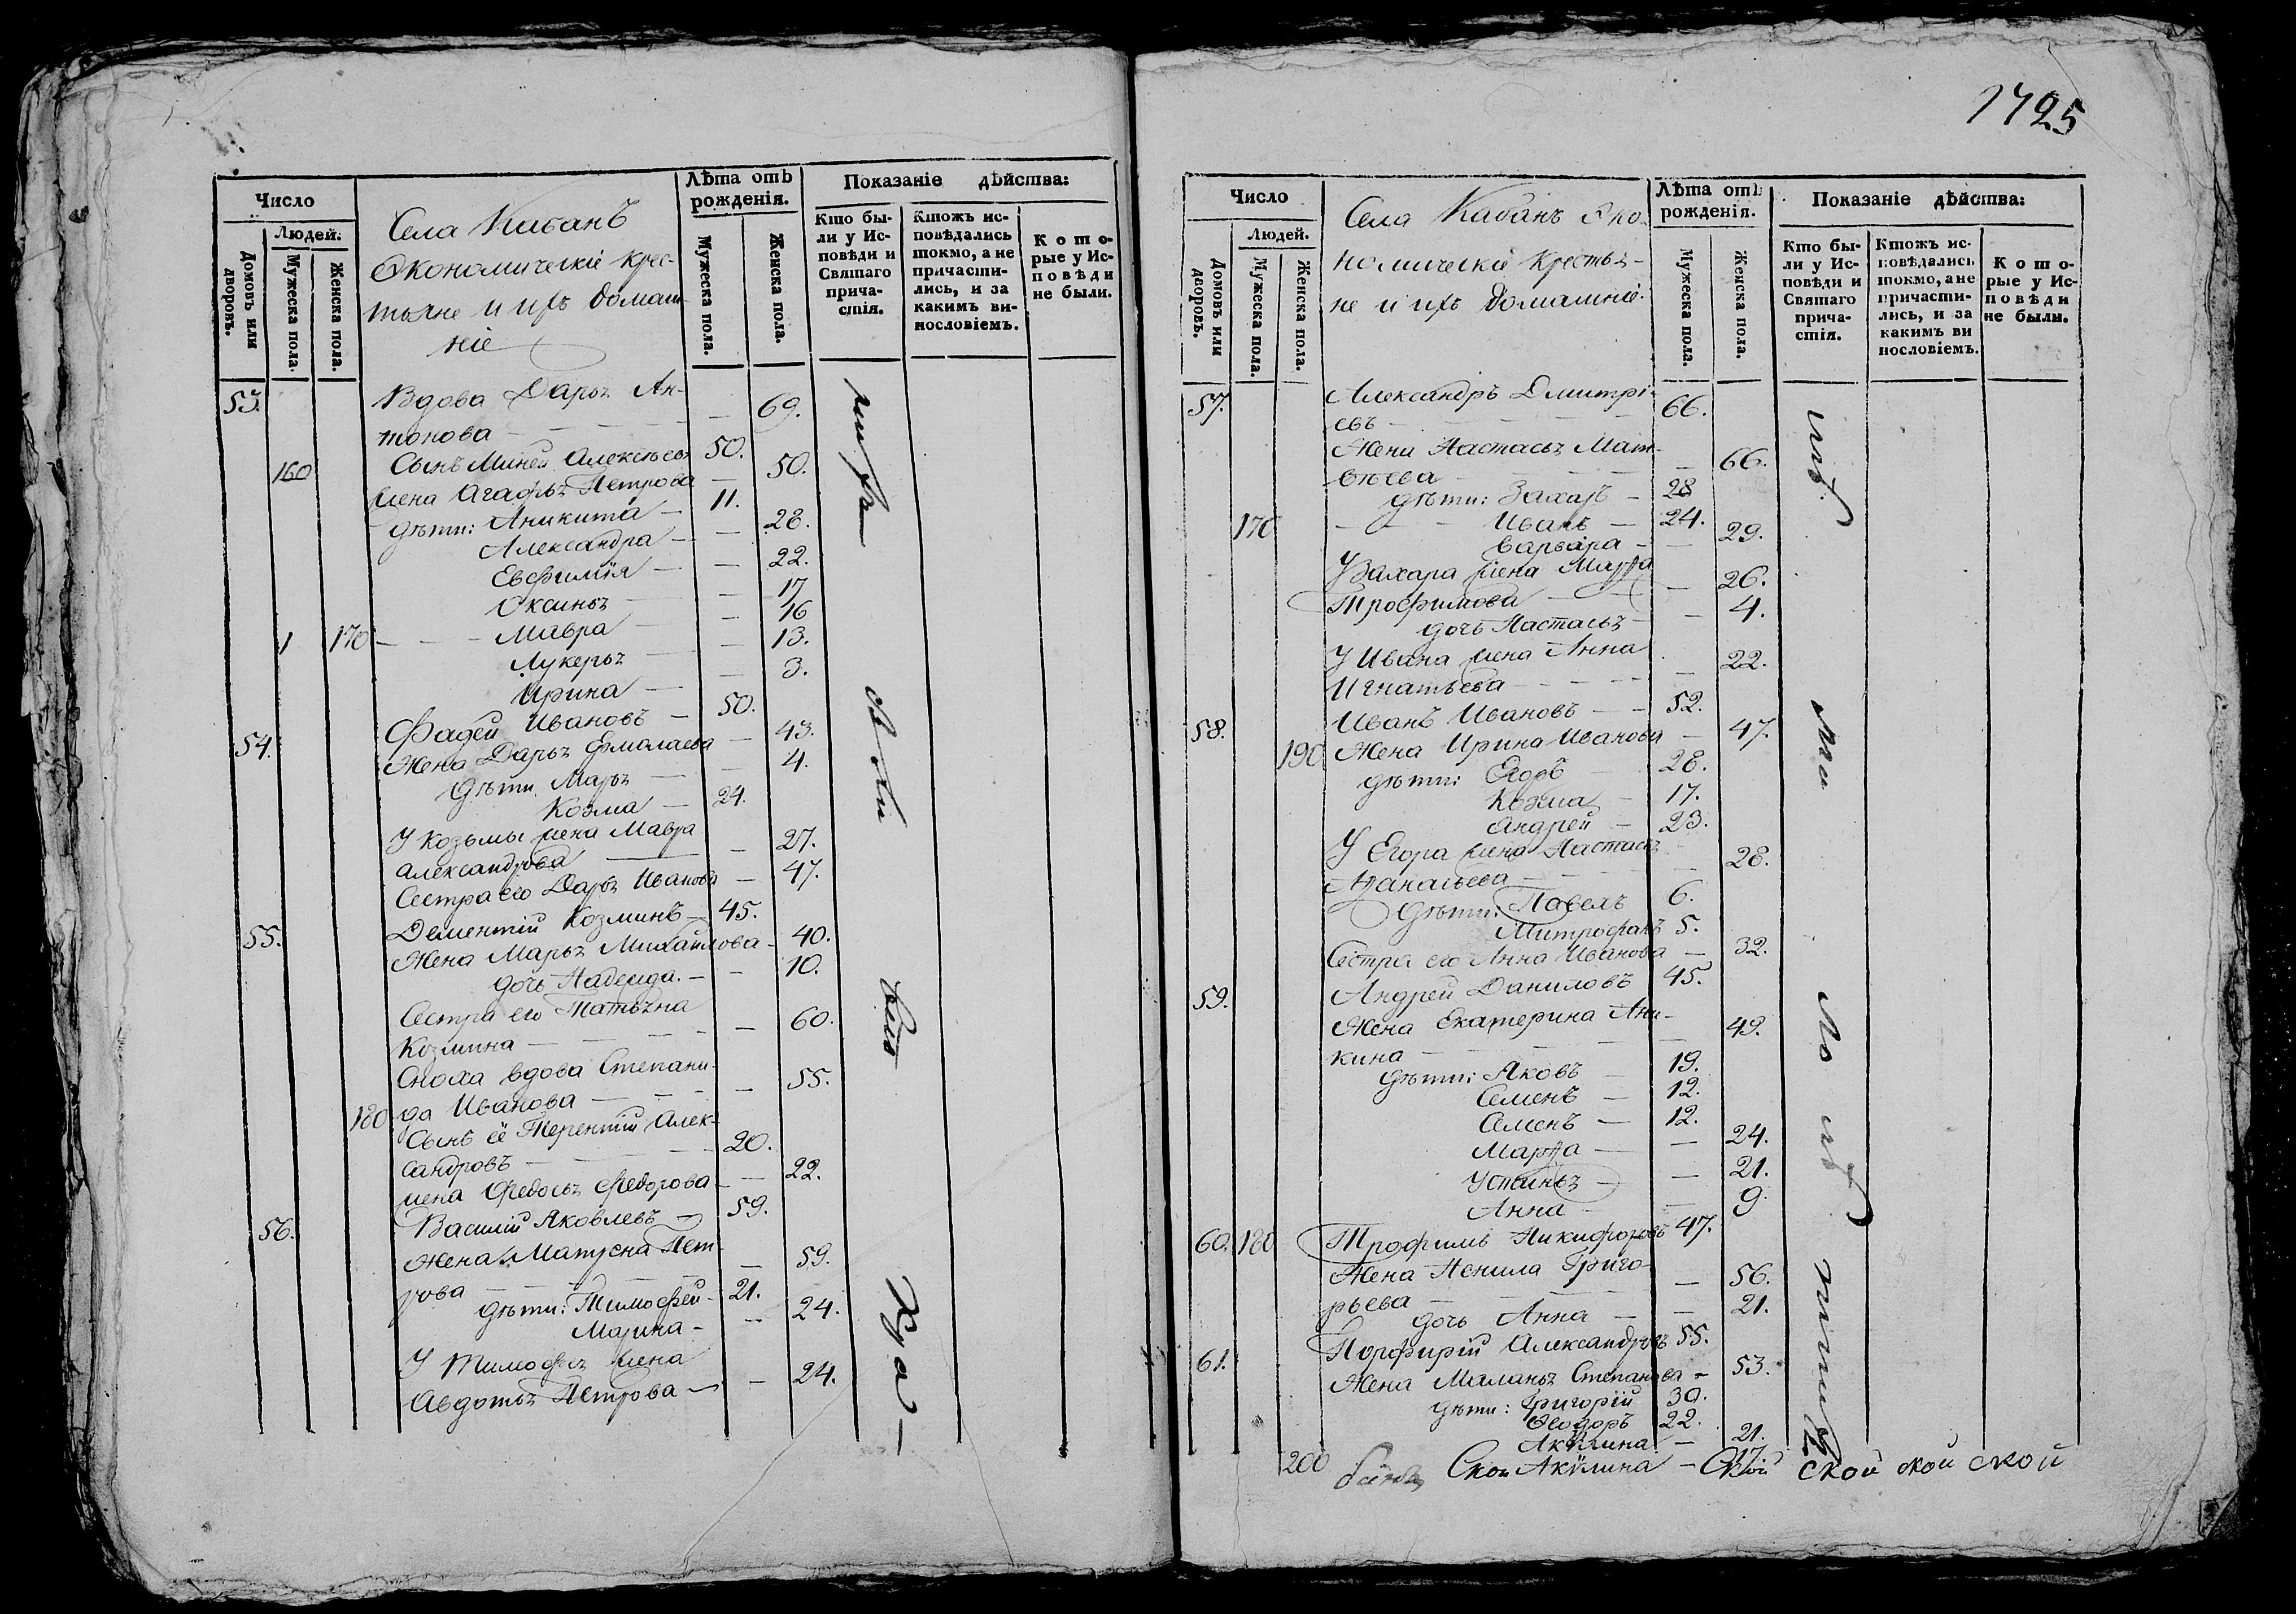 Число
Людей.
Домовъ или дворовъ.
Мужеска пола.
Женска пола.
Села Кабанъ
Экономическіе крес-
тьяне и ихъ домаш-
ніе
Лѣта отъ рожденія.
Мужеска пола.
Женска пола.
Показаніе дѣйства:
Кто бы-
ли у Ис-
повѣди и
Святаго
прича-
стія.
Ктожъ ис-
повѣдались
токмо, а не
причасти-
лись, и за
какимъ ви-
нословіемъ.
Кото-
рые у Ис-
повѣди
не были.
53. Вдова Дарья Ан-
тонова — 69.
160 Сынъ Миней Алексѣевъ 50.
Жена Агафья Петрова — 50.
Дѣти: Аникита — 11.
Александра — 28.
Евфимія — 22.
Оксинья — 17
1 170 Мавра — 16
Лукерья — 13.
Ирина — 3.
54. Фадей Ивановъ — 50.
Жена Дарья Ермолаева — 43.
Дѣти Марья — 4.
Козма — 24.
У Козьмы жена Мавра
Александрова — 27.
Сестра его Дарья Иванова — 47.
55. Дементій Козминъ — 45.
Жена Марья Михайлова — 40.
дочь Надежда. — 10.
Сестра его Татьяна
Козмина — 60.
Сноха вдова Степани-
180 да Иванова — 55.
Сынъ её Терентій Алек-
сандровъ — 20.
жена Федосья Федорова — 22.
56. Василій Яковлевъ — 59.
Жена Матрена Пет-
рова — 59.
Дѣти: Тимофей — 21.
Марина — 24.
У Тимофея жена
Авдотья Петрова — 24.
1725
Число
Людей.
Домовъ или дворовъ.
Мужеска пола.
Женска пола.
Села Кабанъ Эко-
номическіе крестья-
не и ихъ домашніе.
Лѣта отъ рожденія.
Мужеска пола.
Женска пола.
Показаніе дѣйства:
Кто бы-
ли у Ис-
повѣди и
Святаго
прича-
стія.
Ктожъ ис-
повѣдались
токмо, а не
причасти-
лись, и за
какимъ ви
нословіемъ.
Кото-
рые у Ис-
повѣди
не были.
57. Александръ Дмитрі-
евъ — 66.
Жена Настасья Мат-
вѣева — 66.
Дѣти: Захаръ — 28
170 Иванъ — 24.
Варвара — 29.
У Захара жена Марѳа
Трофимова — 26.
дочь Настасья — 4.
У Ивана жена Анна
Игнатьева — 22.
58. Иванъ Ивановъ — 52.
190 Жена Ирина Иванова — 47.
дѣти: Егоръ — 28.
Козма — 17.
Андрей — 23.
У Егора жена Настасья
Аѳанасьева — 28.
Дѣти: Павелъ 6.
Митрофанъ 5.
Сестра его Анна Иванова — 32.
59. Андрей Даниловъ 45.
Жена Екатерина Ани-
кина — 49.
Дѣти: Яковъ — 19.
Семенъ — 12.
Семенъ — 12.
Марѳа — 24.
Устинья — 21.
Анна — 9.
60. 180 Трофимъ Никифоровъ 47.
Жена Ненила Григо-
рьева — 56.
дочь Анна — 21.
61. Порфирій Александровъ 55.
Жена Маланья Степанова — 53.
Дѣти: Григорій 30.
Ѳеодоръ 22.
Акулина — 21.
200 Акулина — 17. ской ской ской